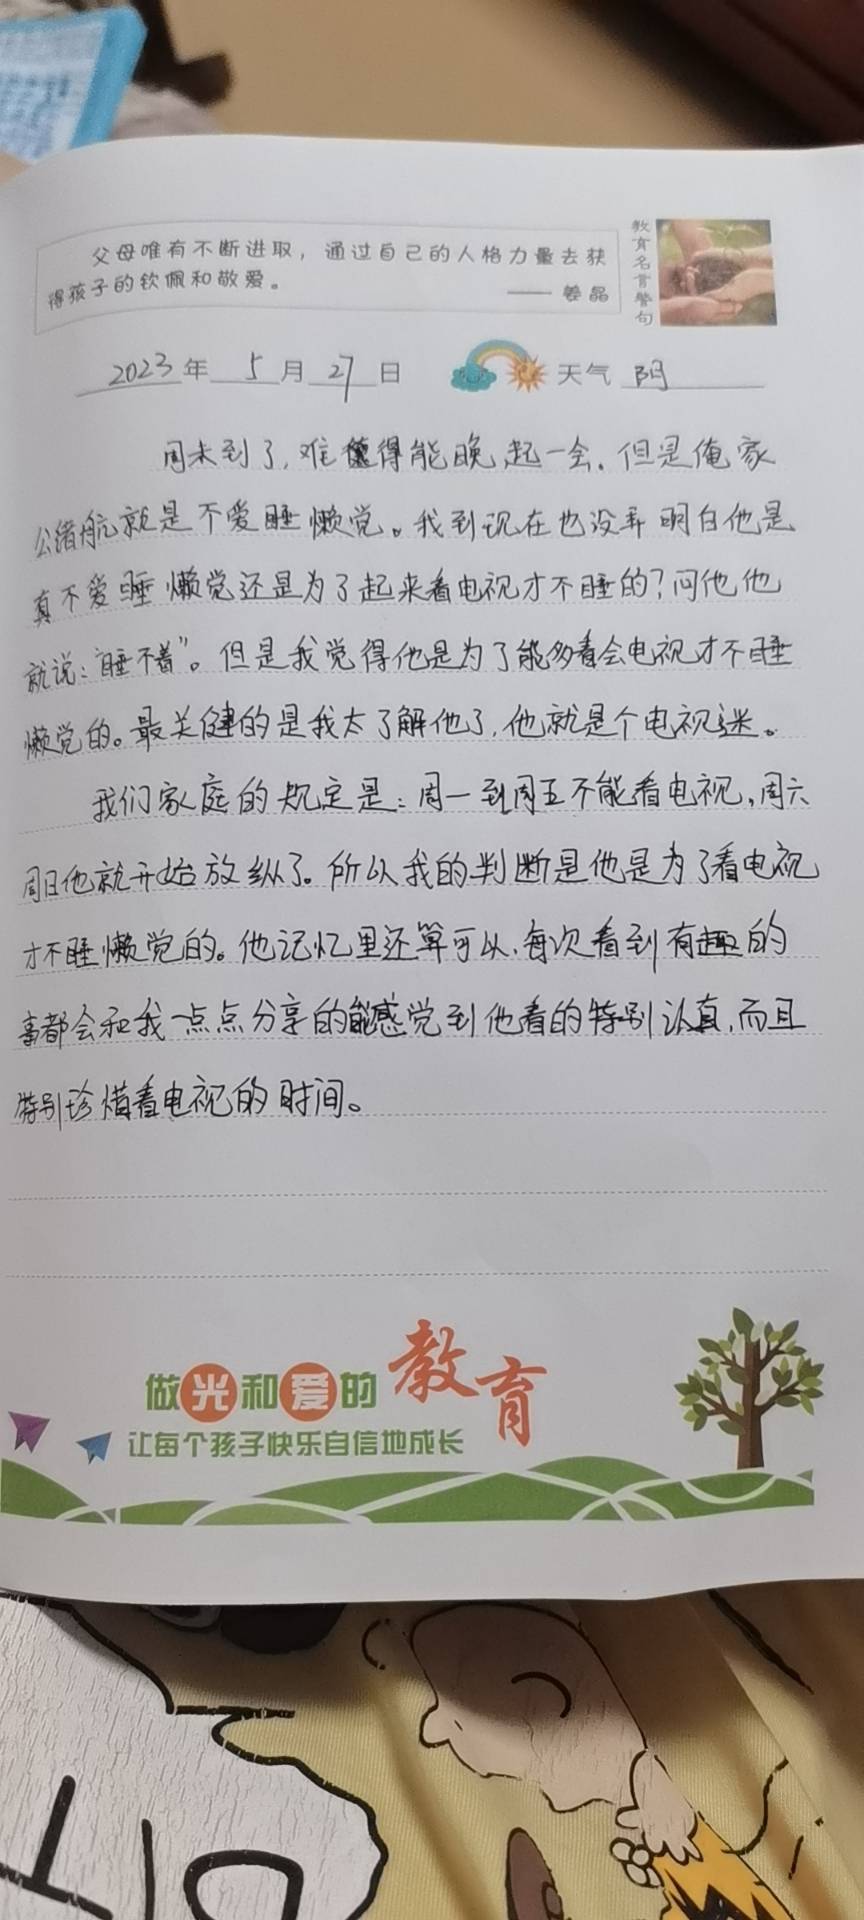 父母唯有不断进取，通过自己的人格力量去获
得孩子的钦佩和敬爱。
—— 姜晶
教育名言警句
2023年 5月 27日 天气 阴
周末到了，难得能晚起一会。但是俺家
公绪航就是不爱睡懒觉。我到现在也没弄明白他是
真不爱睡懒觉还是为了起来看电视才不睡的？问他他
就说：“睡不着”。但是我觉得他是为了能多看会电视才不睡
懒觉的。最关健的是我太了解他了，他就是个电视迷。
我们家庭的规定是：周一到周五不能看电视，周六
周日他就开始放纵了。所以我的判断是他是为了看电视
才不睡懒觉的。他记忆里还算可以，每次看到有趣的
事都会和我一点点分享的能感觉到他看的特别认真，而且
特别珍惜看电视的时间。
做光和爱的教育
让每个孩子快乐自信地成长